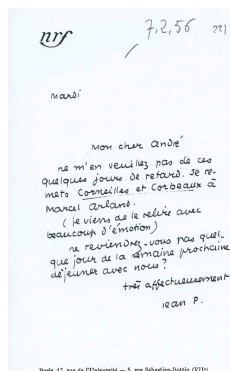 nrf
7.2.56
221
Mardi
Mon cher André
ne m'en veuillez pas de ces
quelques jours de retard. Je re-
mets Corneilles et Corbeaux à
Marcel Arland.
(je viens de le relire avec
beaucoup d'émotion)
ne reviendrez-vous pas quel-
que jour de la semaine prochaine
déjeuner avec nous?
très affectueusement
Jean P.
Paris, 17, rue de l'Université — 5, rue Sébastien-Bottin (VIIe)